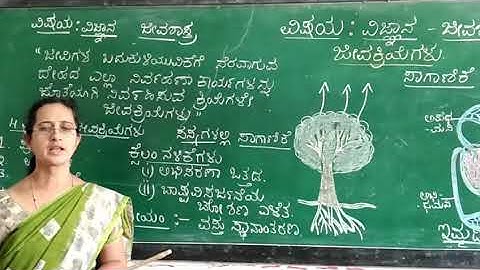 ವಿಷಯ: ವಿಜ್ಞಾನ ಜೀವಶಾಸ್ತ್ರ
"ಜೀವಿಗಳ ಬದುಕುಳಿಯುವಿಕೆಗೆ ನೆರವಾಗುವ
ದೇಹದ ಎಲ್ಲಾ ನಿರ್ವಹಣಾ ಕಾರ್ಯಗಳನ್ನು
ಜೊತೆಯಾಗಿ ನಿರ್ವಹಿಸುವ ಕ್ರಿಯೆಗಳೇ
ಜೀವಕ್ರಿಯೆಗಳು"
ಜೀವಕ್ರಿಯೆಗಳು
ಸಸ್ಯಗಳಲ್ಲಿ ಸಾಗಾಣಿಕೆ
ಕ್ಸೈಲಂ ನಳಿಕೆಗಳು
(i) ಅಭಿಸರಣಾ ಒತ್ತಡ.
(ii) ಬಾಷ್ಪವಿಸರ್ಜನೆಯ
ಸೆಳೆತ.
ಯಂ :- ವಸ್ತು ಸ್ಥಾನಾಂತರಣ.
ವಿಷಯ: ವಿಜ್ಞಾನ - ಜೀವ
ಜೀವಕ್ರಿಯೆಗಳು
ಸಾಗಾಣಿಕೆ